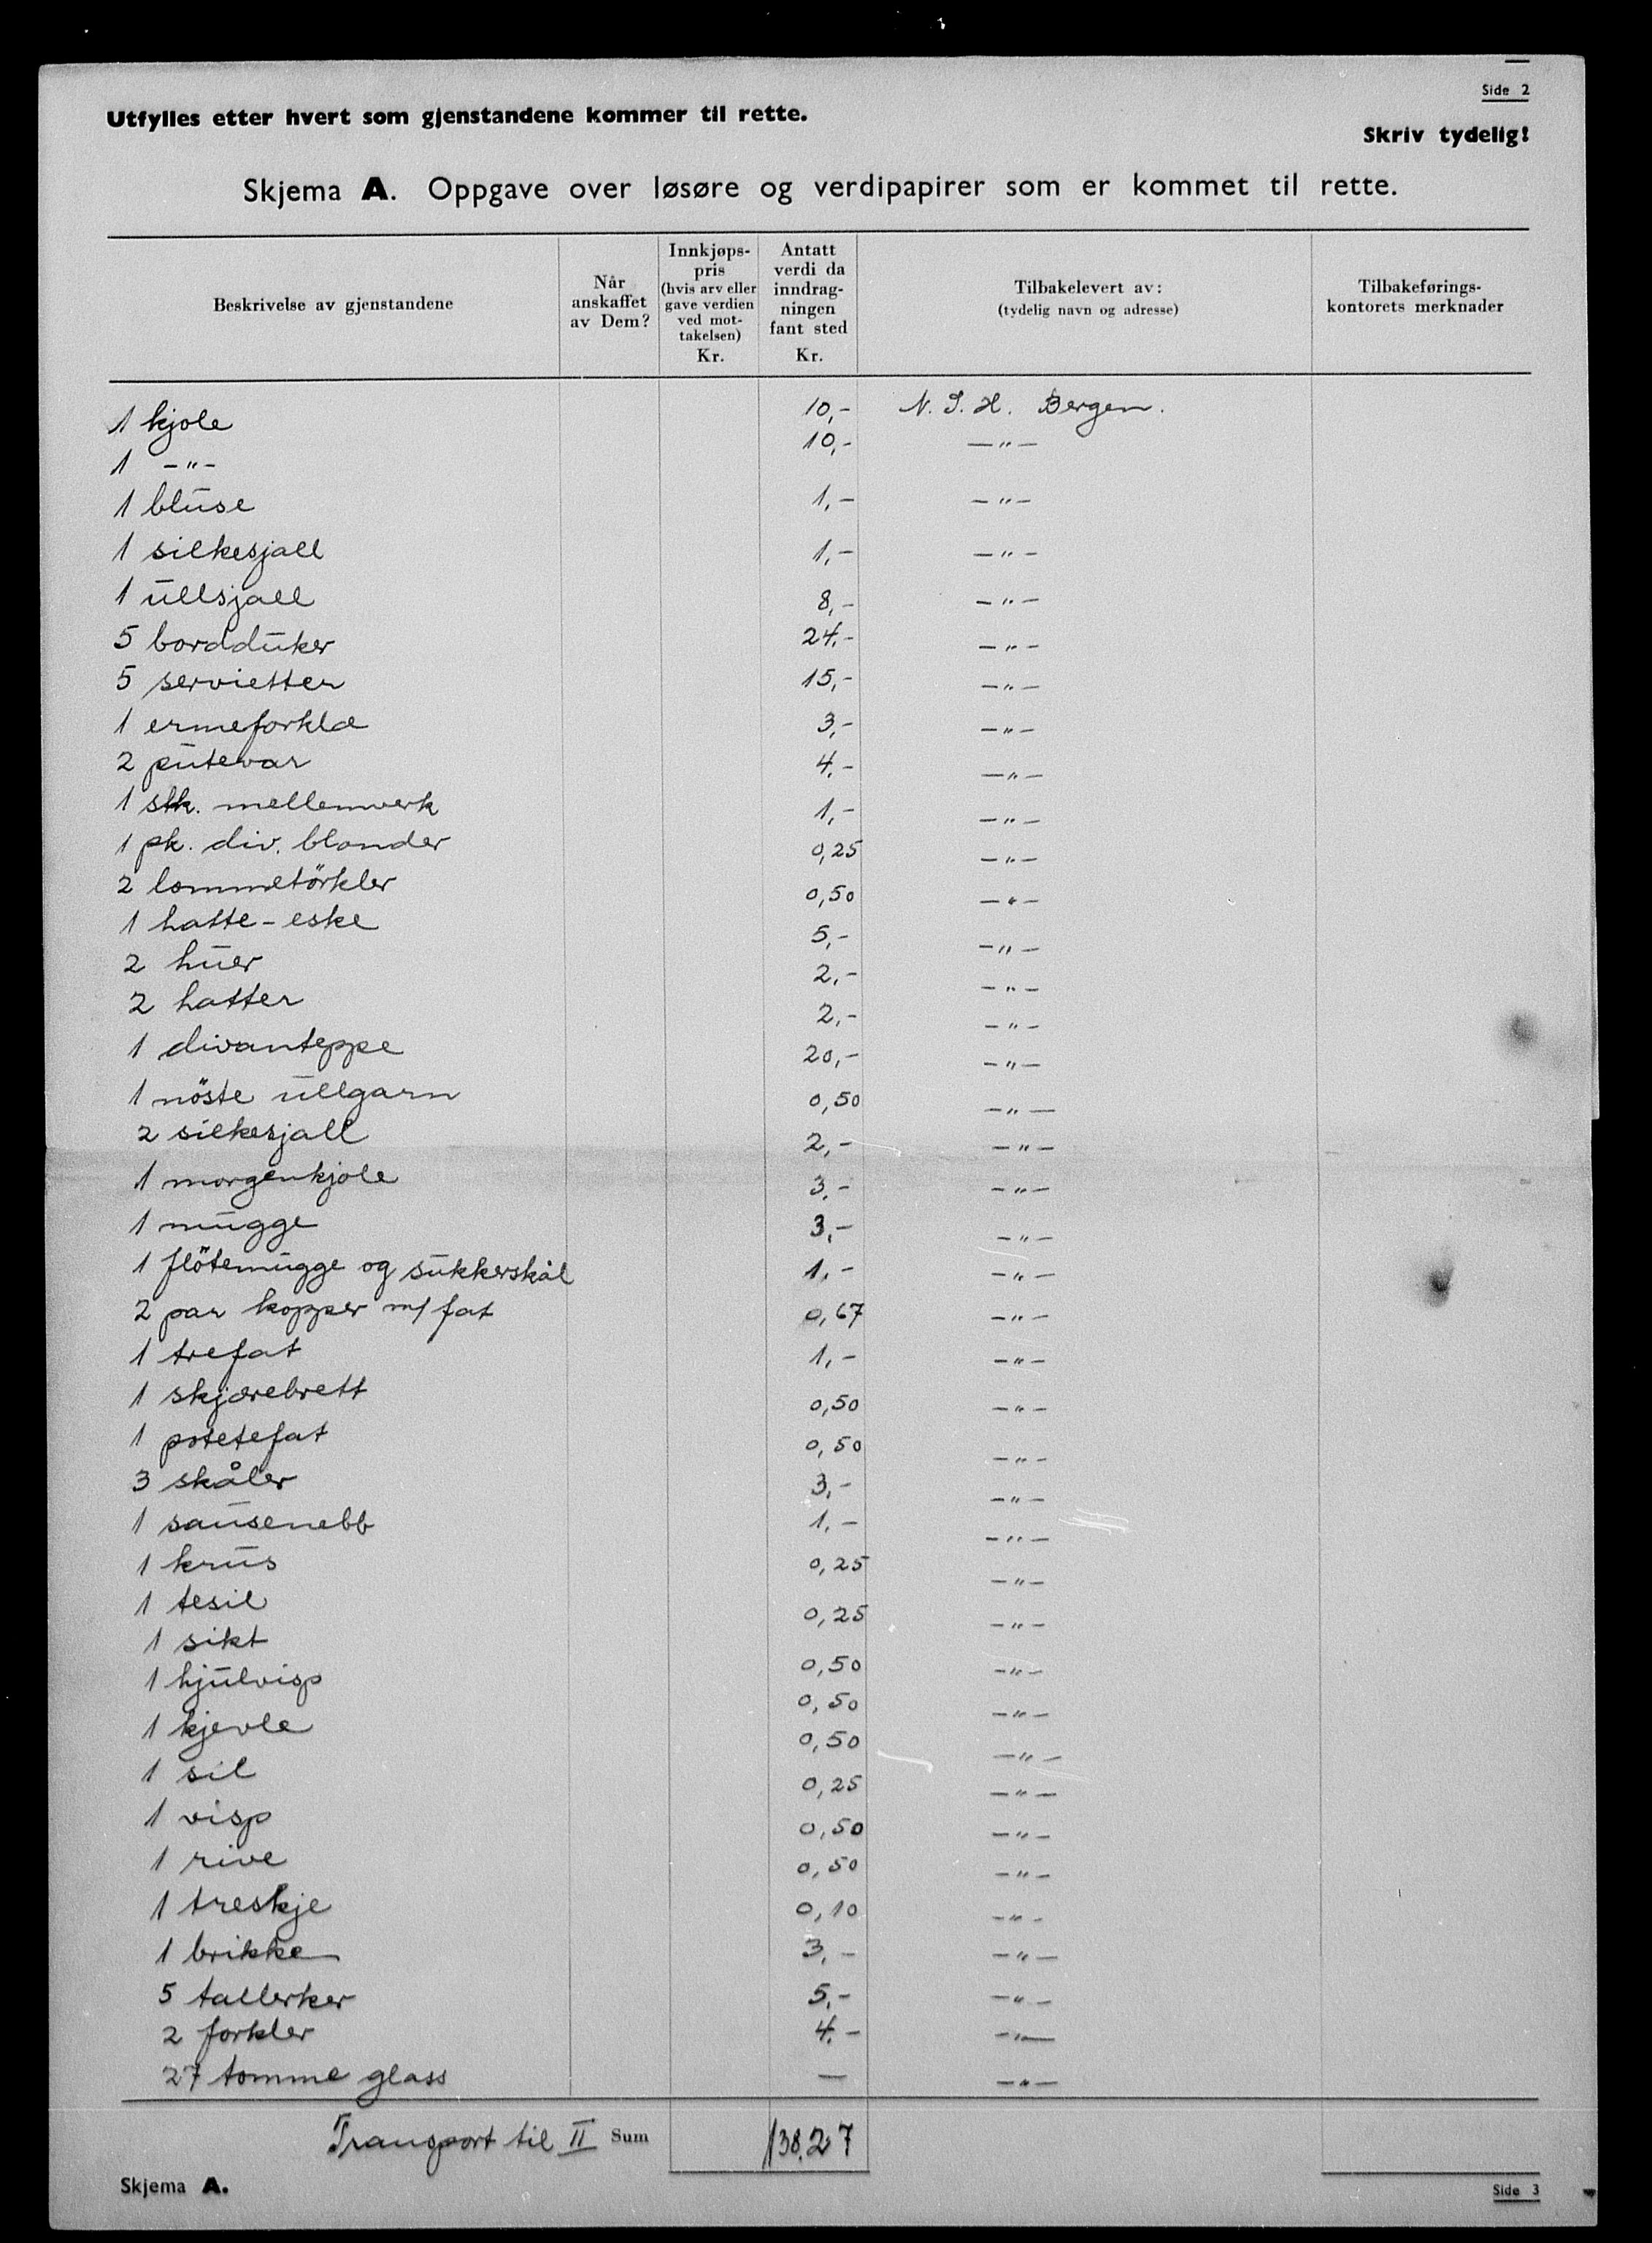 Side 2
Utfylles etter hvert som gjenstandene kommer til rette.
Skriv tydelig!
Skjema A. Oppgave over løsøre og verdipapirer som er kommet til rette.
Beskrivelse av gjenstandene
Når
anskaffet
av Dem?
Innkjøps-
pris
(hvis arv eller
gave verdien
ved mot-
takelsen)
Kr.
Antatt
verdi da
inndrag-
ningen
fant sted
Kr.
Tilbakelevert av:
(tydelig navn og adresse)
Tilbakeførings-
kontorets merknader
1 kjole 10,- N. S. H. Bergen.
1 -"- 10,- -"-
1 bluse 1,- -"-
1 silkesjall 1,- -"-
1 ullsjall 8,- -"-
5 bordduker 24,- -"-
5 servietter 15,- -"-
1 ermeforkle 3,- -"-
2 putevar 4,- -"-
1 stk. mellemverk 1,- -"-
1 pk. div. blonder 0,25 -"-
2 lommetörkler 0,50 -"-
1 hatte-eske 5,- -"-
2 huer 2,- -"-
2 hatter 2,- -"-
1 divanteppe 20,- -"-
1 nöste ullgarn 0,50 -"-
2 silkesjall 2,- -"-
1 morgenkjole 3,- -"-
1 mugge 3,- -"-
1 flötemugge og sukkerskål 1,- -"-
2 par kopper m/ fat 0,67 -"-
1 trefat 1,- -"-
1 skjærebrett 0,50 -"-
1 potetefat 0,50 -"-
3 skåler 3,- -"-
1 sausenebb 1,- -"-
1 krus 0,25 -"-
1 tesil 0,25 -"-
1 sikt 0,50 -"-
1 hjulvisp 0,50 -"-
1 kjevle 0,50 -"-
1 sil 0,25 -"-
1 visp 0,50 -"-
1 rive 0,50 -"-
1 treskje 0,10 -"-
1 brikke 3,- -"-
5 tallerker 5,- -"-
2 forkler 4,- -"-
27 tomme glass — -"-
Transport til II Sum 138,27
Skjema A.
Side 3